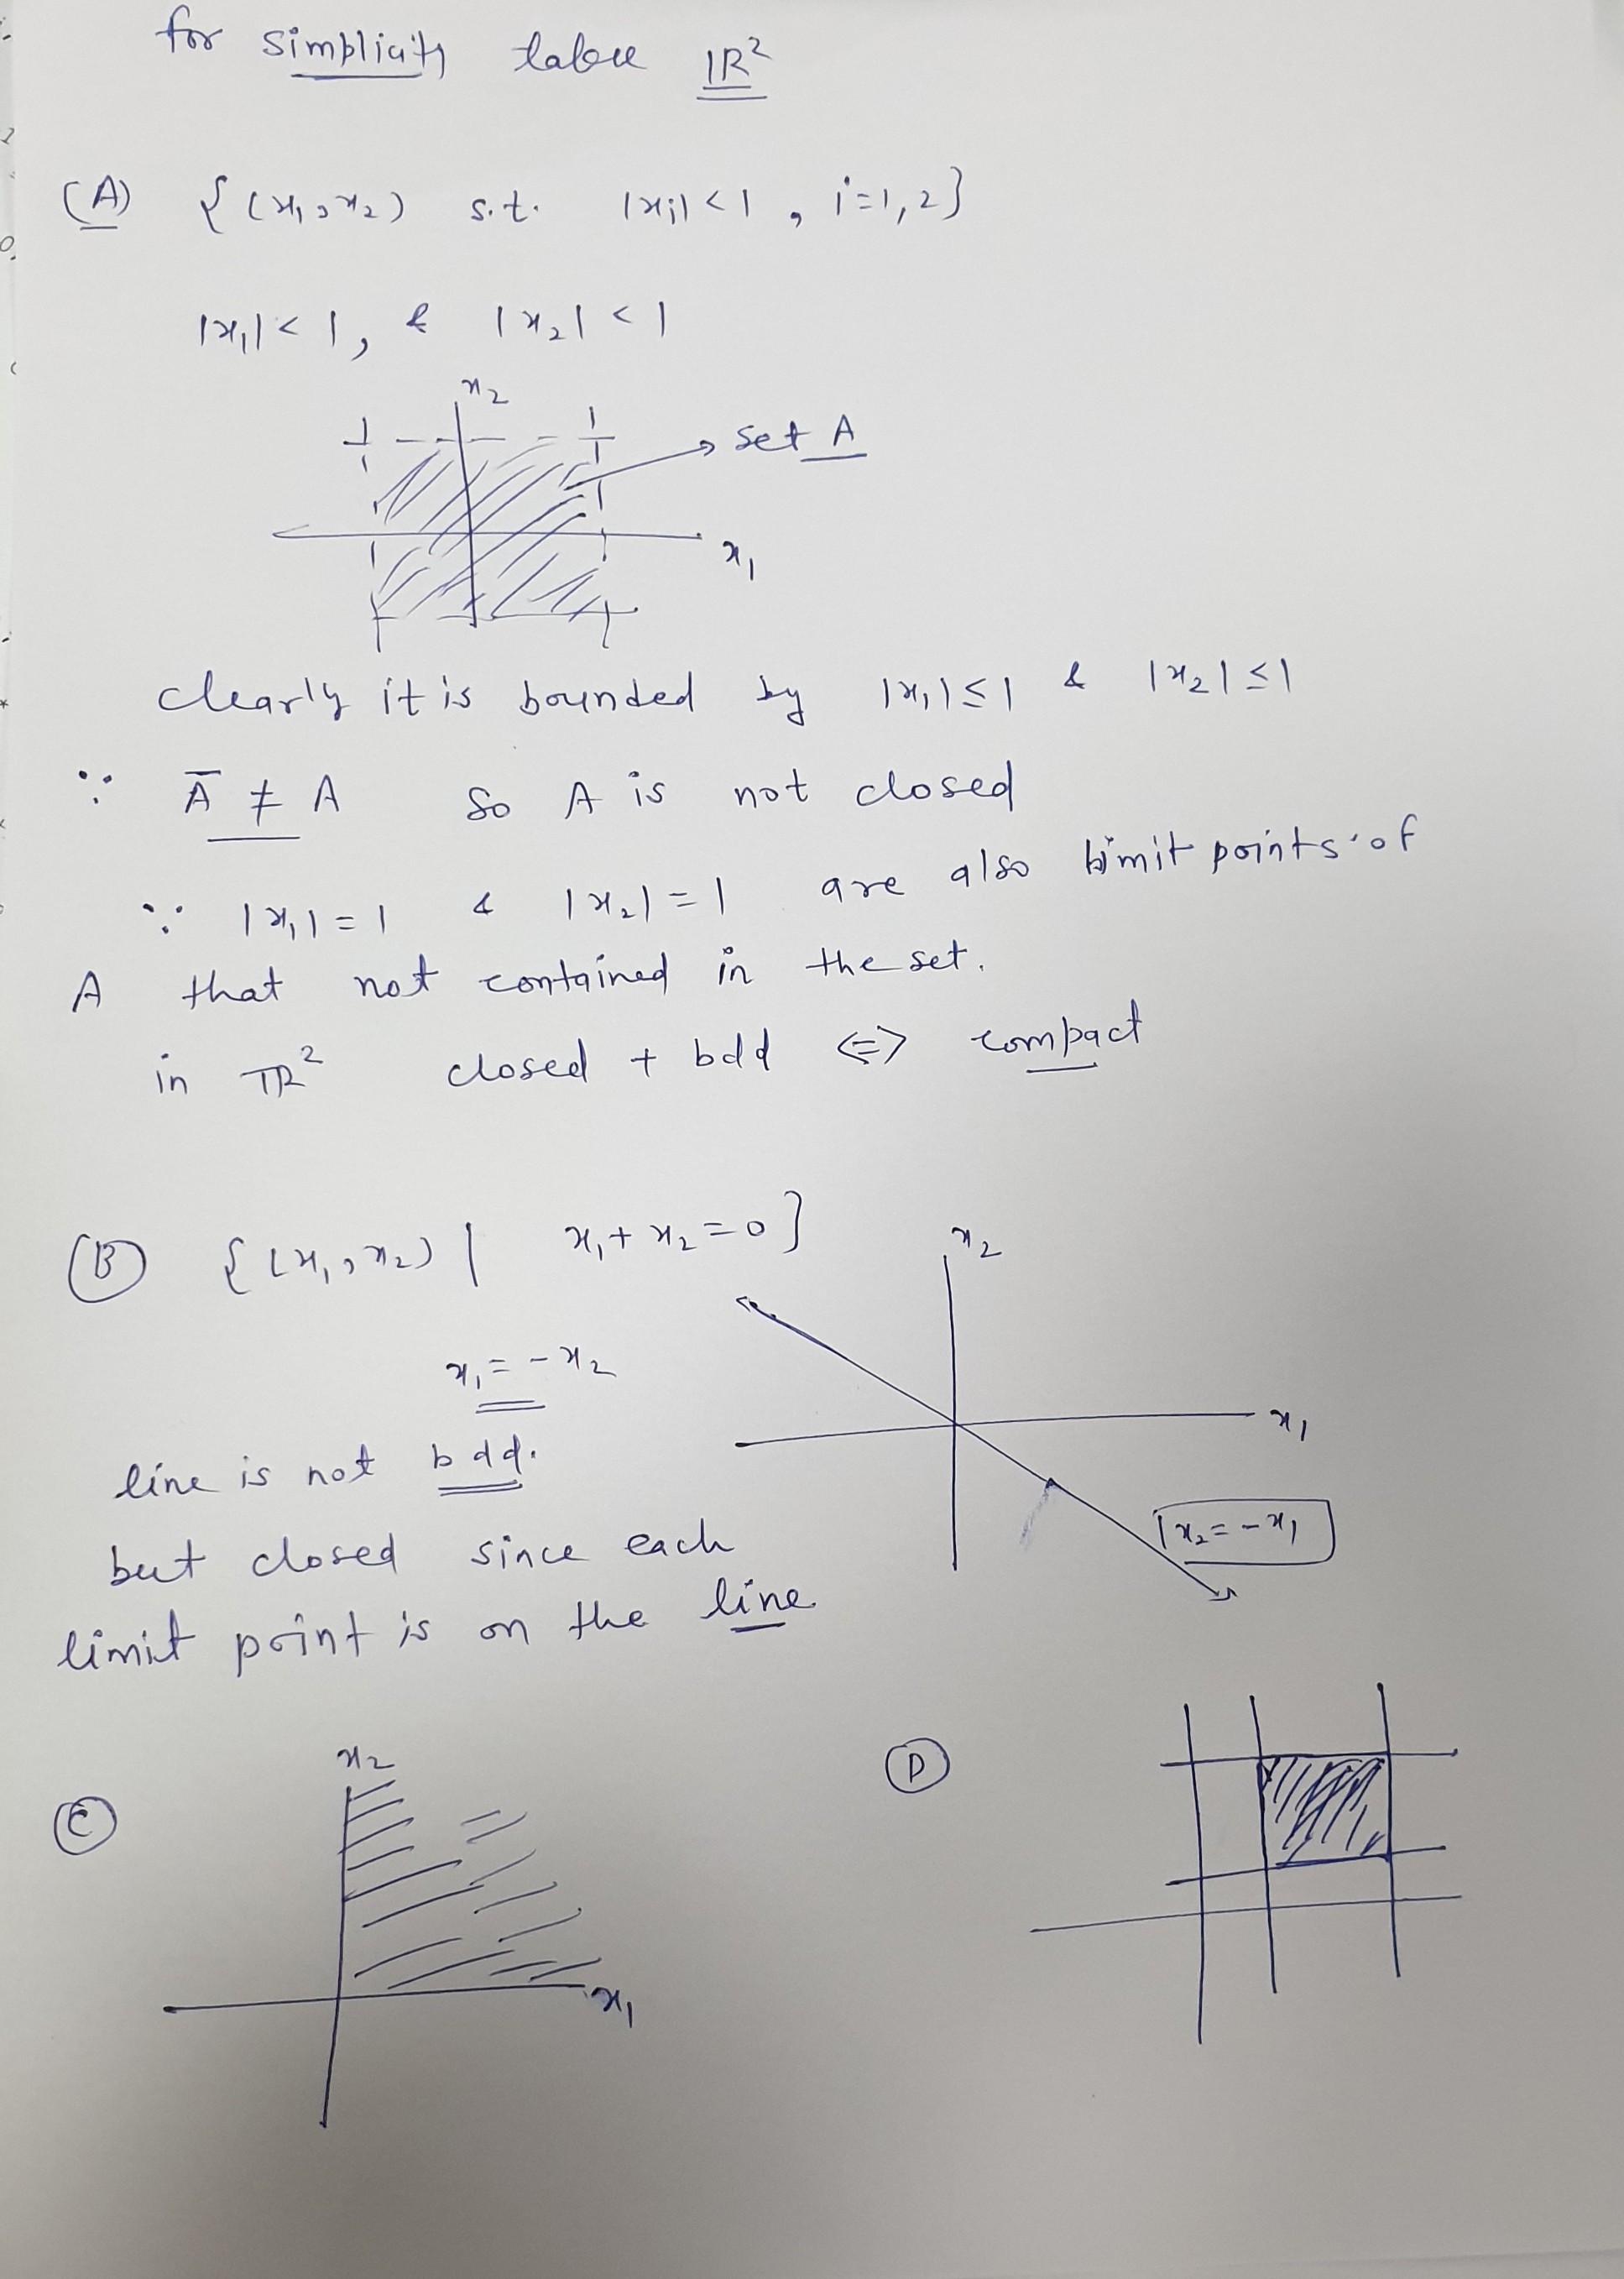 for simplicity take ℝ²
(A) { (x₁, x₂) s.t. |xᵢ| < 1, i=1,2}
|x₁| < 1, & |x₂| < 1
x₂
Set A
x₁
clearly it is bounded by |x₁| ≤ 1 & |x₂| ≤ 1
∵ Ā ≠ A So A is not closed
∵ |x₁| = 1 & |x₂| = 1 are also limit points of
A that not contained in the set.
in ℝ² closed + bdd ⇔ compact
(B) { (x₁, x₂) | x₁ + x₂ = 0 }
x₂
x₁ = -x₂
x₁
line is not bdd.
x₂ = -x₁
but closed since each
limit point is on the line
(C)
x₂
x₁
(D)